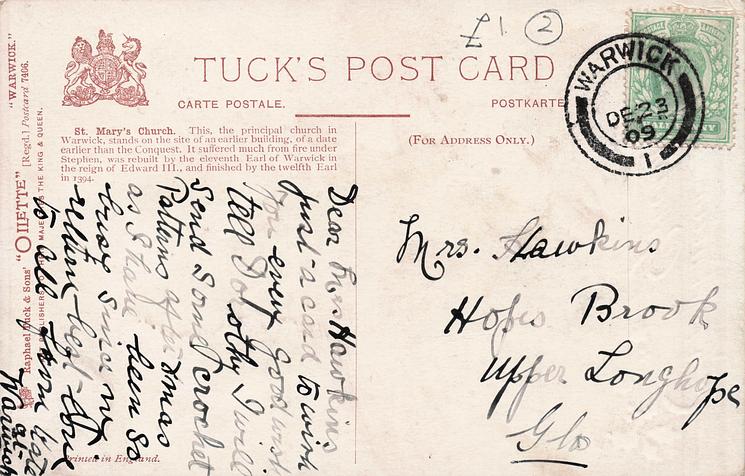 £1 2
TUCK'S POST CARD
CARTE POSTALE. POSTKARTE
(FOR ADDRESS ONLY.)
St. Mary's Church. This, the principal church in
Warwick, stands on the site of an earlier building, of a date
earlier than the Conquest. It suffered much from fire under
Stephen, was rebuilt by the eleventh Earl of Warwick in
the reign of Edward III., and finished by the twelfth Earl
in 1394.
"WARWICK."
Raphael Tuck & Sons' "OILETTE" [Regd.] Postcard 7406.
PUBLISHERS TO THEIR MAJESTIES THE KING & QUEEN.
Printed in England.
WARWICK
DE 23
09
1
Mrs. Hawkins
Hopes Brook
Upper Longhope
Glo
Dear Mrs Hawkins
just a card to wish
you every good wish
tell Dorothy I will
send some crochet
Patterns after Xmas
as I have been so
busy since my
return best love
to all from
at
Warwick